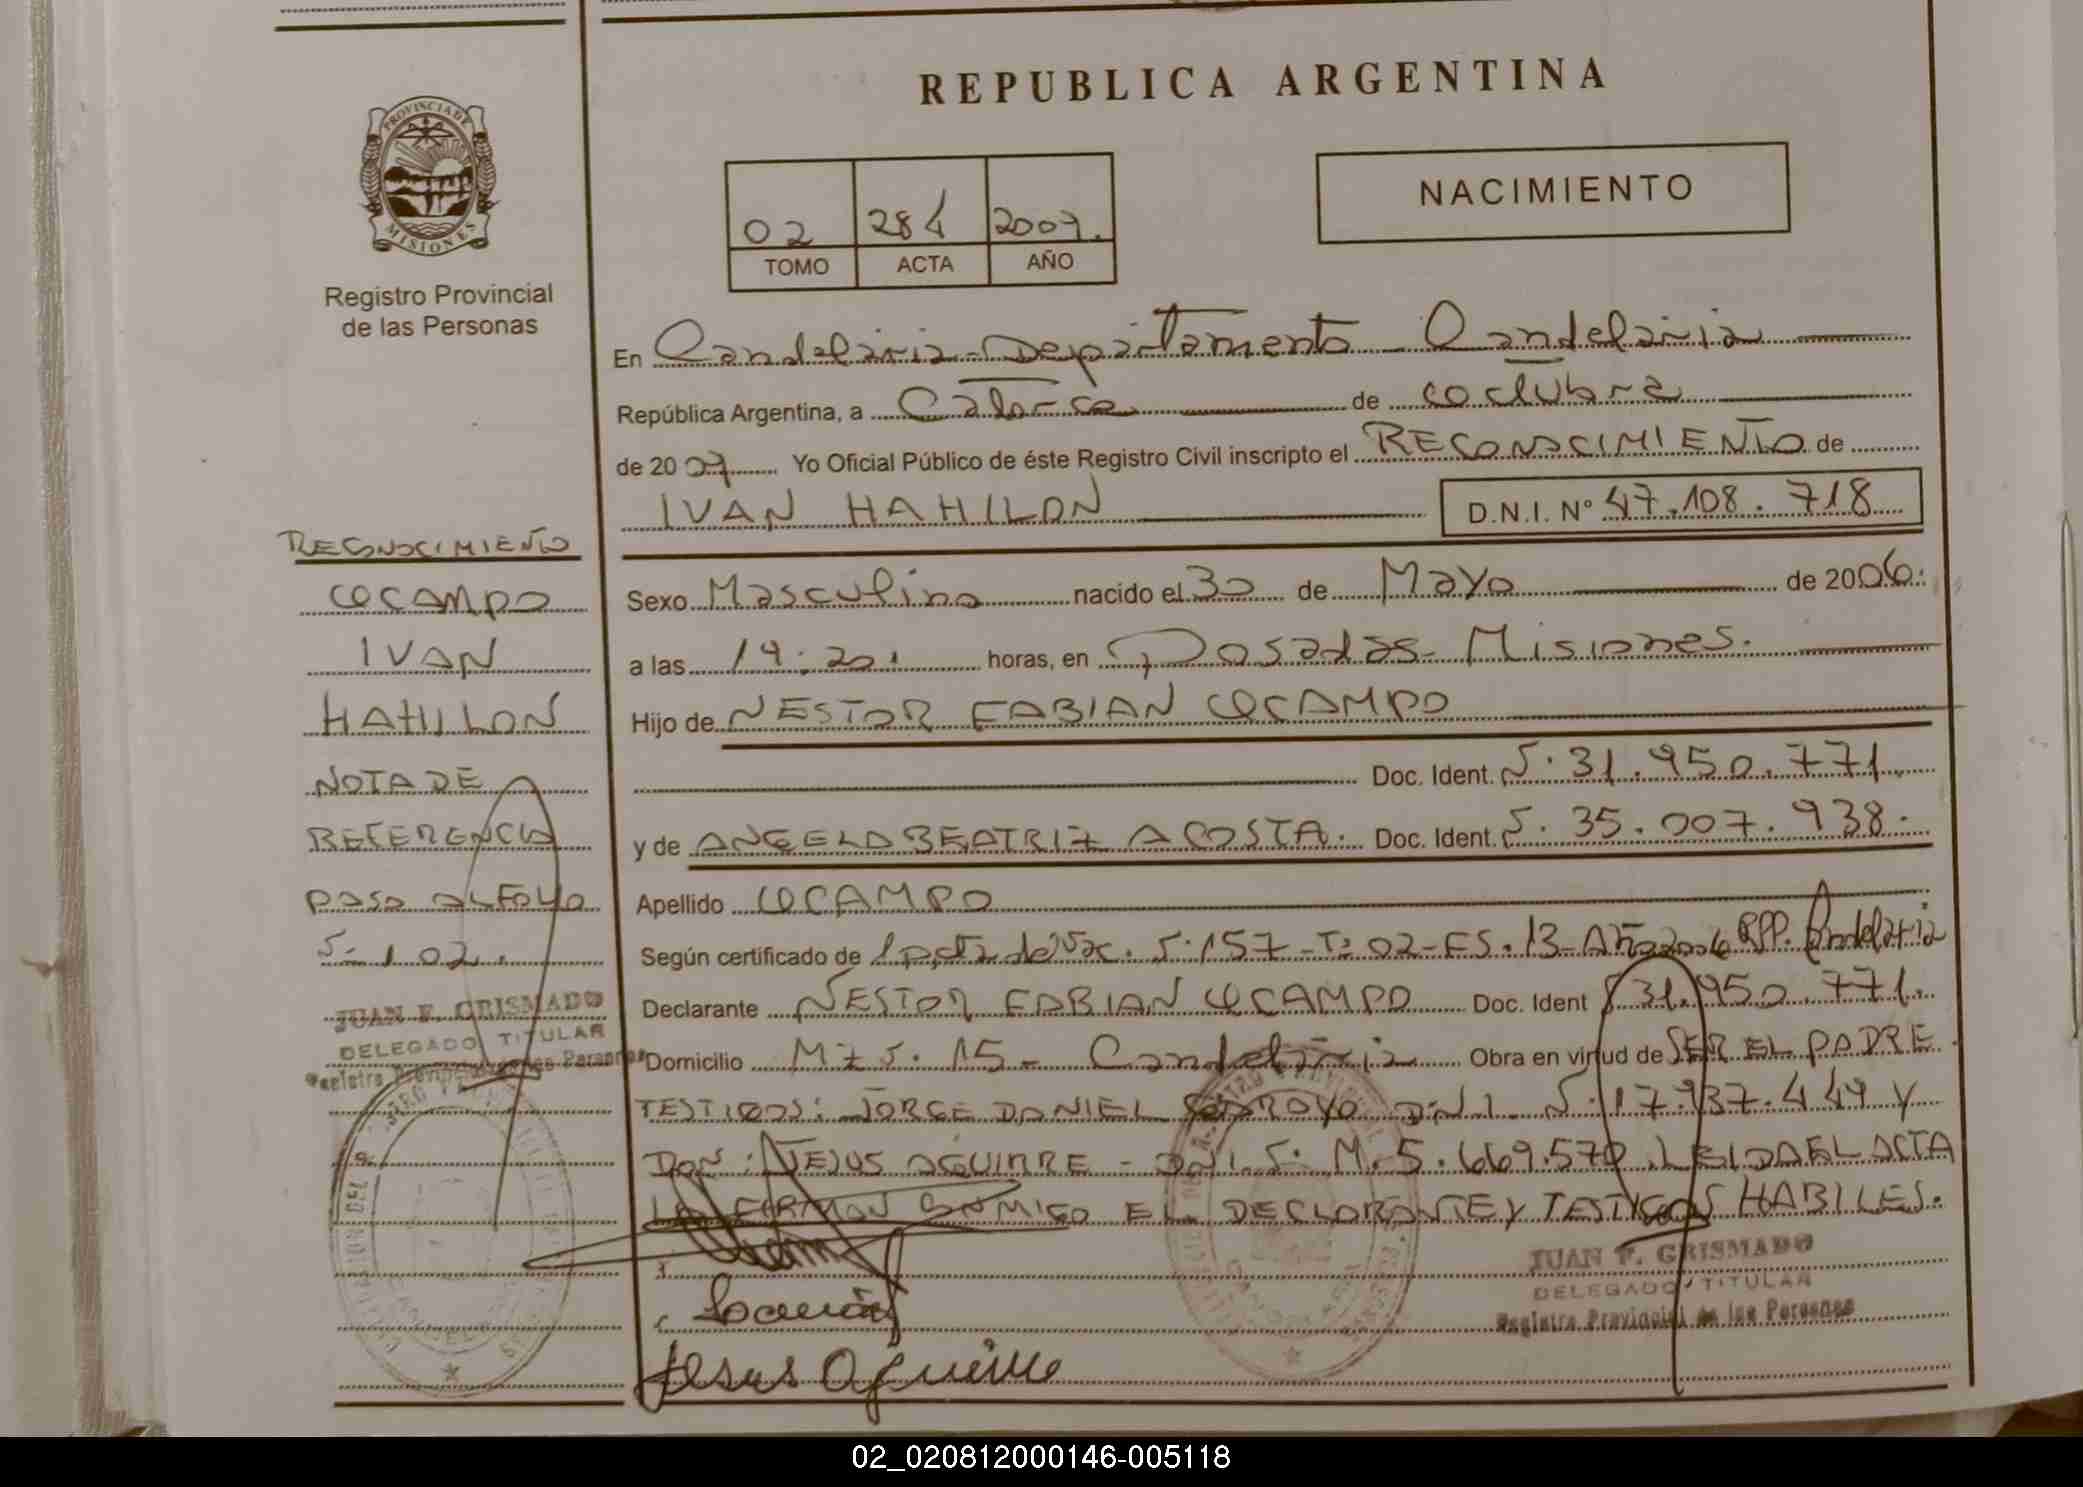 REPUBLICA ARGENTINA
PROVINCIA DE
MISIONES
Registro Provincial
de las Personas
02 284 2007.
TOMO ACTA AÑO
NACIMIENTO
En Candelaria - Departamento Candelaria
República Argentina, a Catorce de octubre
de 2007 Yo Oficial Público de éste Registro Civil inscripto el RECONOCIMIENTO de
IVAN HAHILON D.N.I. Nº 47.108.718
Sexo Masculino nacido el 30 de Mayo de 2006.
a las 14:20. horas, en Posadas - Misiones.
Hijo de NESTOR FABIAN OCAMPO
Doc. Ident. Nº 31.950.771.
y de ANGELA BEATRIZ ACOSTA. Doc. Ident. Nº 35.007.938.
Apellido OCAMPO
Según certificado de Nº 157 - Tº 02 - FS. 13 - Año 2006 RPP. Candelaria
Declarante NESTOR FABIAN OCAMPO Doc. Ident Nº 31.950.771.
Domicilio Mz Nº 15 - Candelaria Obra en virtud de SER EL PADRE
TESTIGOS: JORGE DANIEL DNI Nº 17.937.449 Y
DON: JESUS AGUIRRE - DNI. Nº M. 5.669.570. LEIDA EL ACTA
LA FIRMAN CONMIGO EL DECLARANTE Y TESTIGOS HABILES.
JUAN F. GRISMADO
DELEGADO TITULAR
Registro Provincial de las Personas
Jesus Aguirre
RECONOCIMIENTO
OCAMPO
IVAN
HAHILON
NOTA DE
REFERENCIA
PASO AL FOLIO
Nº 102.
JUAN F. GRISMADO
DELEGADO TITULAR
Registro Provincial de las Personas
02_020812000146-005118